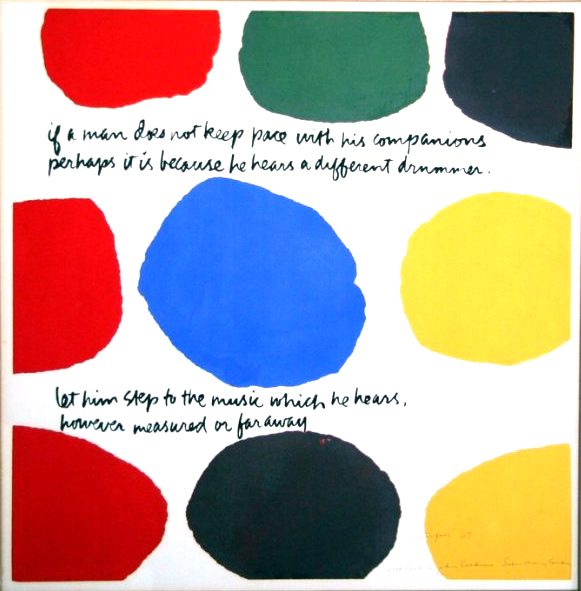 if a man does not keep pace with his companions
perhaps it is because he hears a different drummer.
let him step to the music which he hears,
however measured or far away